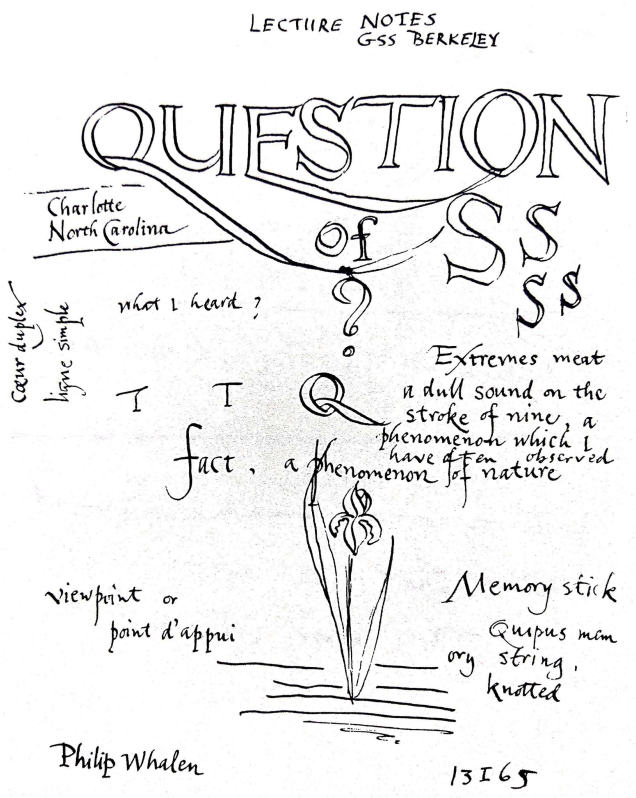 LECTURE NOTES
GSS BERKELEY
QUESTION
of
?
S S
S S
Charlotte
North Carolina
Cœur duplex
ligne simple
what I heard ?
I I Q
Extremes meat
a dull sound on the
stroke of nine, a
phenomenon which I
have often observed
fact, a phenomenon of nature
viewpoint or
point d'appui
Memory stick
Quipus mem
ory string,
knotted
Philip Whalen
13 I 65